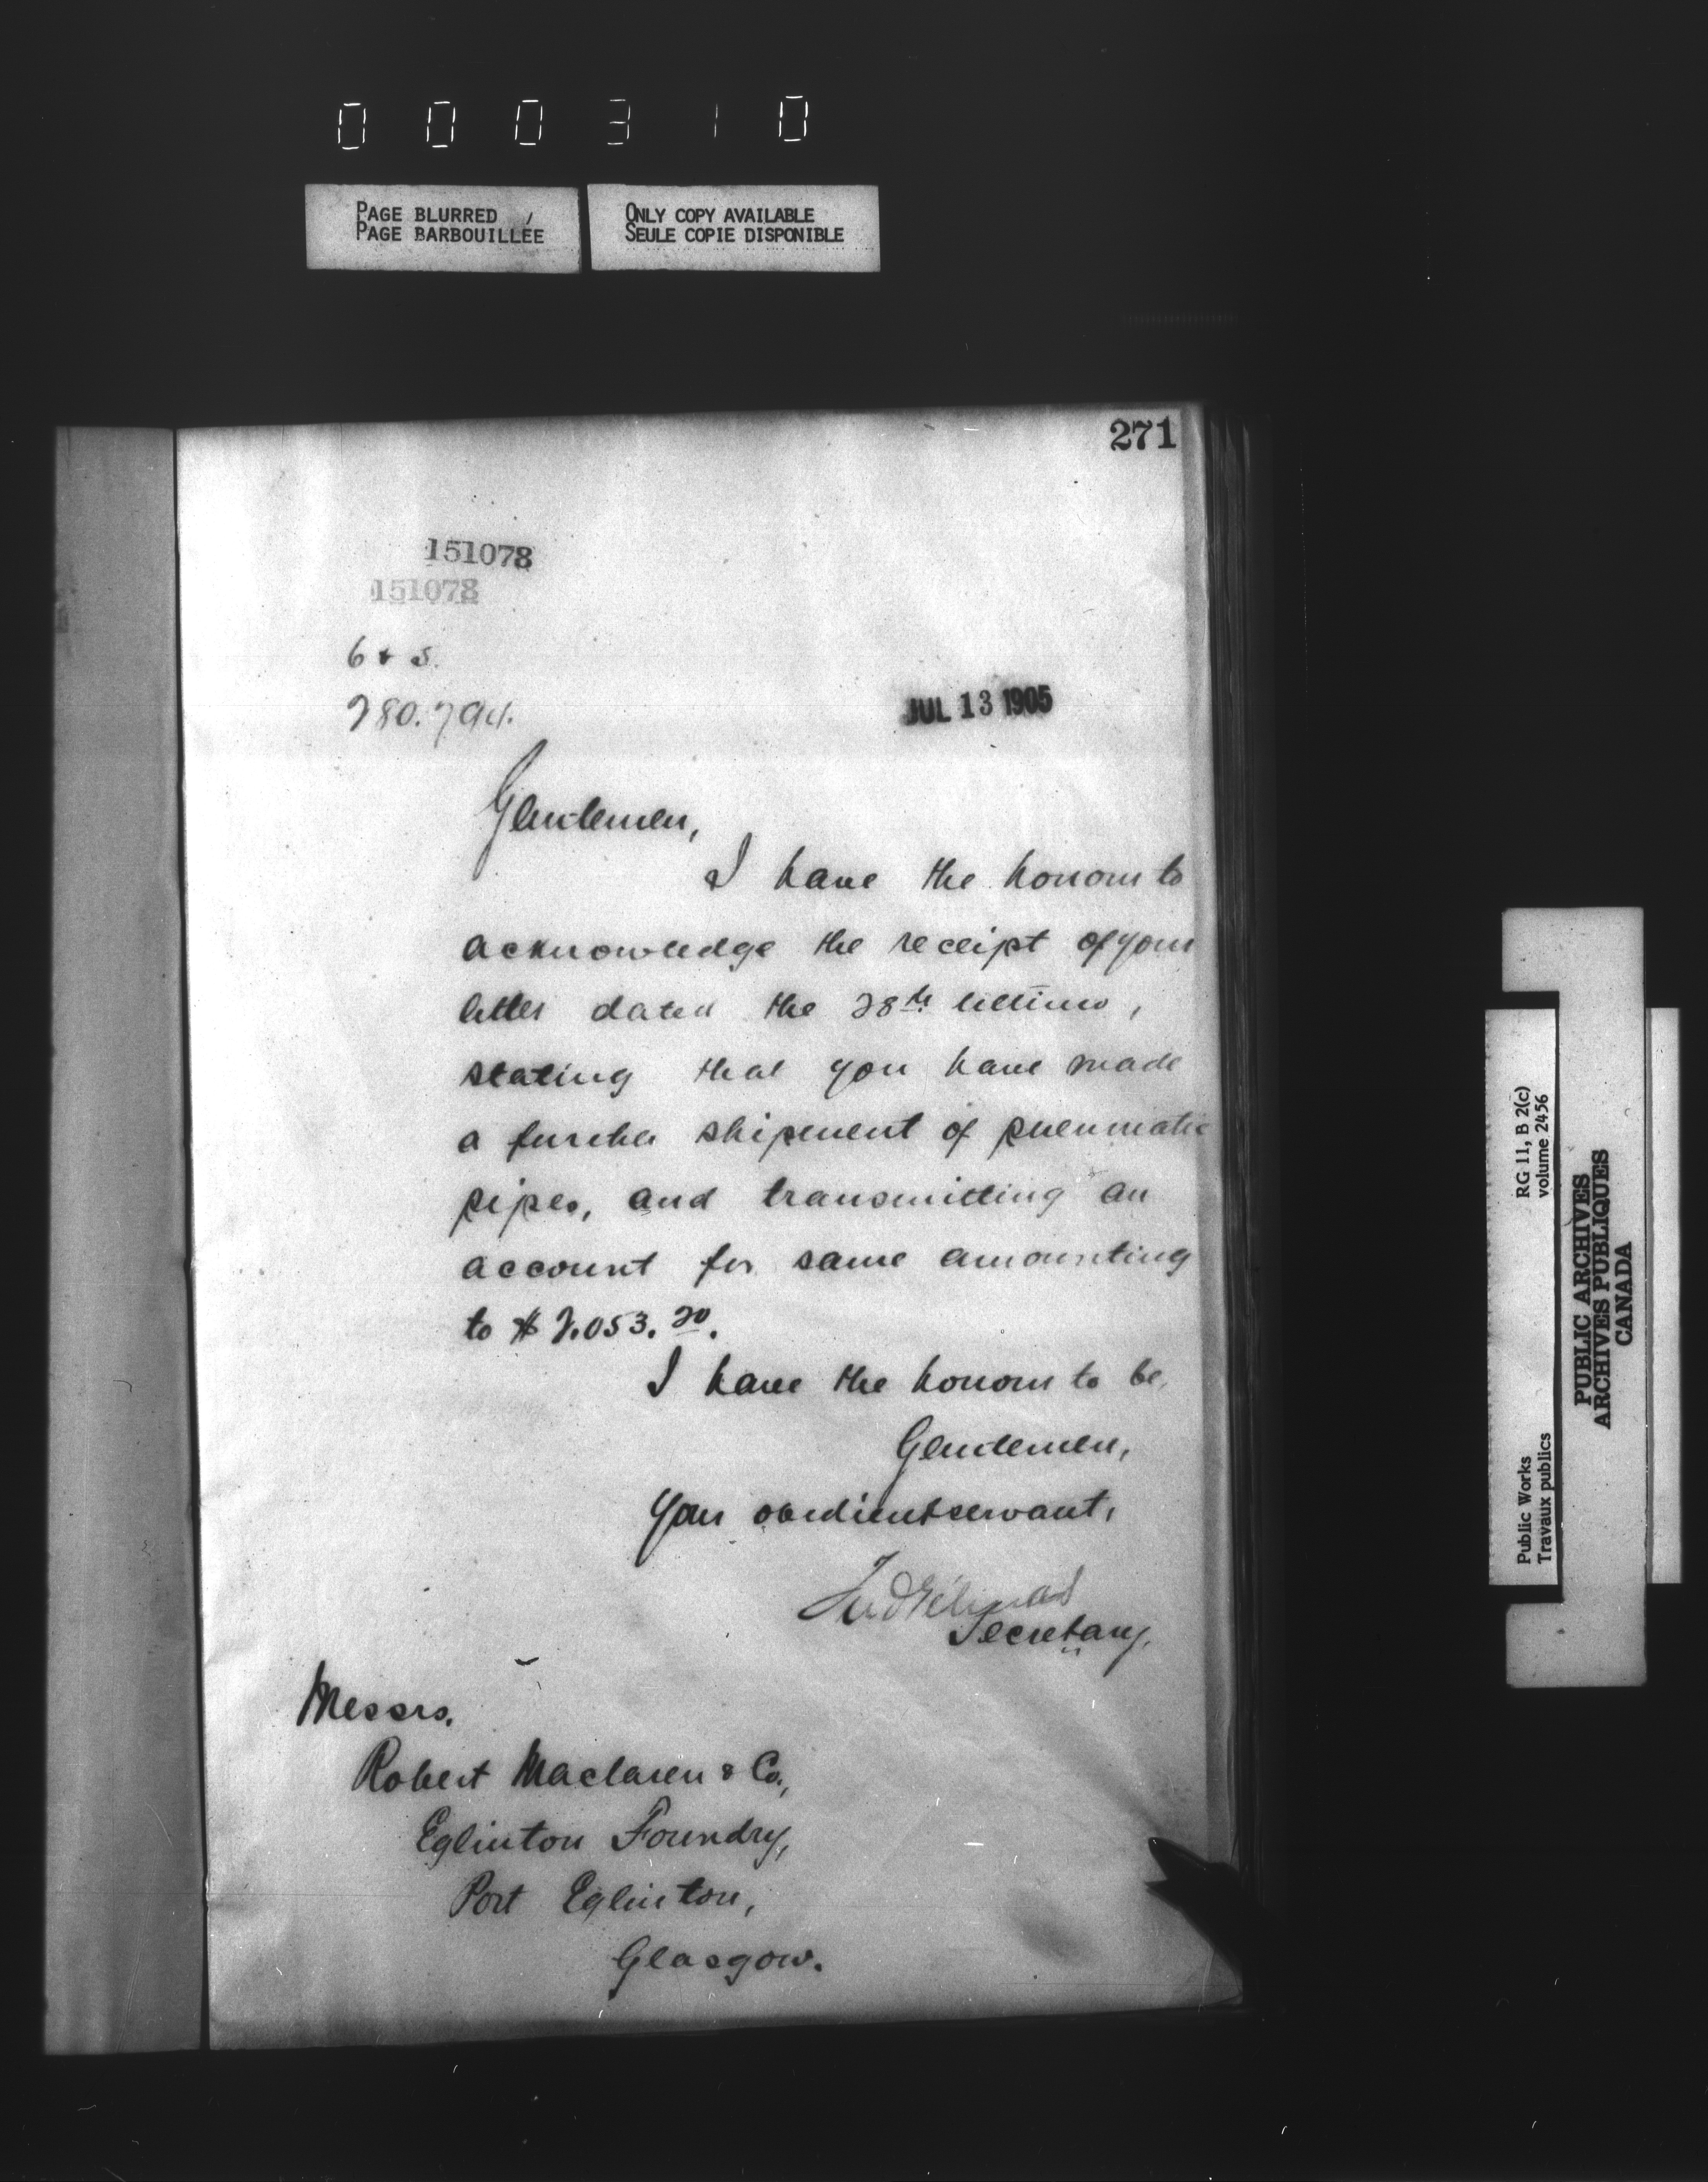 000310
PAGE BLURRED
PAGE BARBOUILLÉE
ONLY COPY AVAILABLE
SEULE COPIE DISPONIBLE
271
151078
151078
6 & S.
280.794.
JUL 13 1905
Gentlemen,
I have the honour to
acknowledge the receipt of your
letter dated the 28th ultimo,
stating that you have made
a further shipment of pneumatic
pipes, and transmitting an
account for same amounting
to $2.053.20.
I have the honour to be,
Gentlemen,
Your obedient servant,
Secretary.
Messrs.
Robert Maclaren & Co.,
Eglinton Foundry,
Port Eglinton,
Glasgow.
RG 11, B 2(c)
volume 2456
Public Works
Travaux publics
PUBLIC ARCHIVES
ARCHIVES PUBLIQUES
CANADA